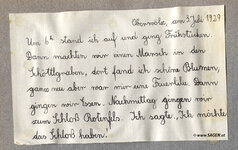 Oberwölz, am 3. Juli 1929
Um 6h stand ich auf und ging Frühstücken.
Dann machten wir einen Marsch in den
Schöttlgraben, dort fand ich schöne Blumen,
ganz neu aber war mir eine Feuerlilie. Dann
gingen wir Essen. Nachmittag gingen wir
zum Schloß Rotenfels. Ich sagte, "Ich möchte
das Schloß haben!"
www.SAGEN.at